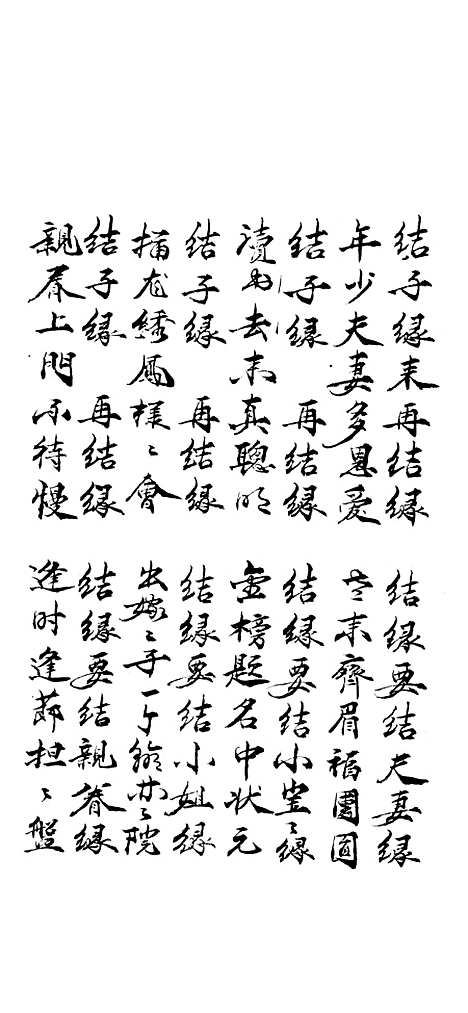 结子缘来再结缘
结缘要结夫妻缘
年少夫妻多恩爱
老来齐眉福团圆
结子缘 再结缘
结缘要结小官々缘
读书去来真聪明
金榜题名中状元
结子缘 再结缘
结缘要结小姐缘
描龙绣凤样々会
出嫁々于一个翰林々院
结子缘 再结缘
结缘要结亲眷缘
亲眷上门不待慢
逢时逢节担々盘